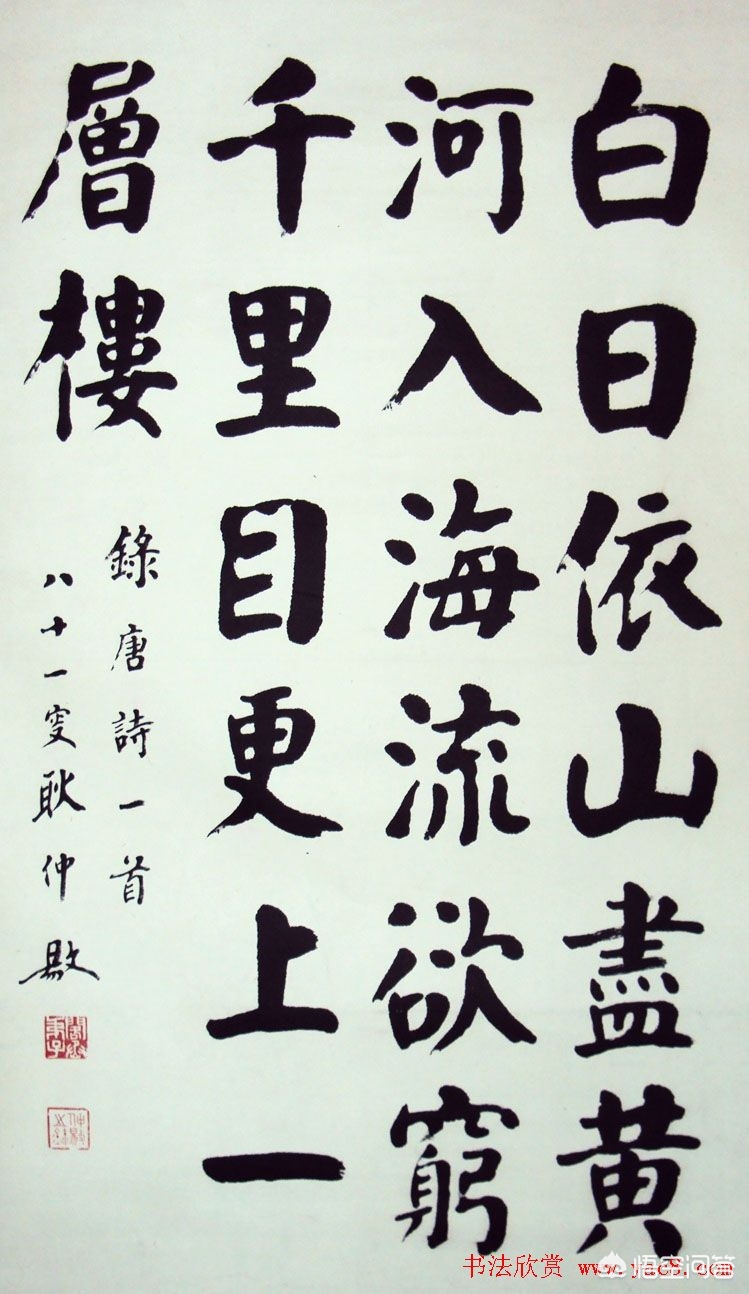 白日依山盡黄
河入海流欲窮
千里目更上一
層樓
錄唐詩一首
八十一叟耿仲敭
书法欣赏 www.yac8.com
悟空问答